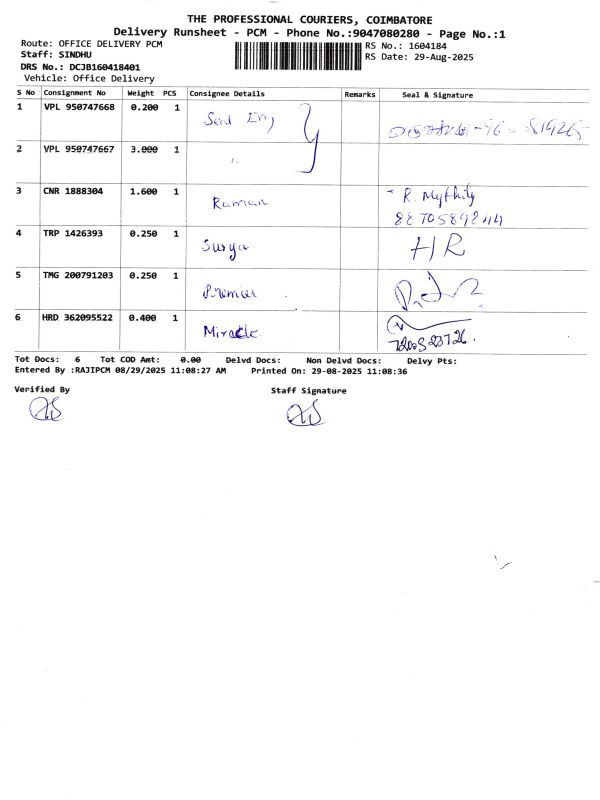 THE PROFESSIONAL COURIERS, COIMBATORE
Delivery Runsheet - PCM - Phone No.:9047080280 - Page No.:1
Route: OFFICE DELIVERY PCM
RS No.: 1604184
Staff: SINDHU
RS Date: 29-Aug-2025
DRS No.: DCJB160418401
Vehicle: Office Delivery
S No Consignment No Weight PCS Consignee Details Remarks Seal & Signature
1 VPL 950747668 0.200 1
2 VPL 950747667 3.000 1 "
3 CNR 1888304 1.600 1 Raman R. Mythily
4 TRP 1426393 0.250 1 Surya HR
5 TMG 200791203 0.250 1 Premier
6 HRD 362095522 0.400 1 Miracle
Tot Docs: 6 Tot COD Amt: 0.00 Delvd Docs: Non Delvd Docs: Delvy Pts:
Entered By :RAJIPCM 08/29/2025 11:08:27 AM Printed On: 29-08-2025 11:08:36
Verified By Staff Signature